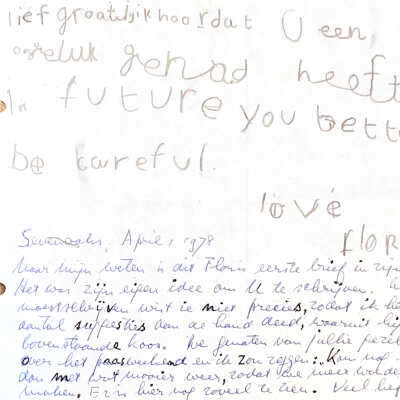 lief groatelijk hoor dat U een,
ongeluk gehad heeft
In future you bette
be careful.
love
flor
Sevenoaks, April, 1978
Naar mijn weten is dit Floris eerste brief in zijn
Het was zijn eigen idee om U te schrijven.
moest schrijven wist ie niet precies, zodat ik he
aantal suggesties aan de hand deed, waaruit hij
bovenstaande koos. We genoten van jullie
over het paasweekend en ik zou zeggen: Kom nog
dan met wat mooier weer, zodat we meer
maken. Er is hier nog zoveel te zien. Veel lief